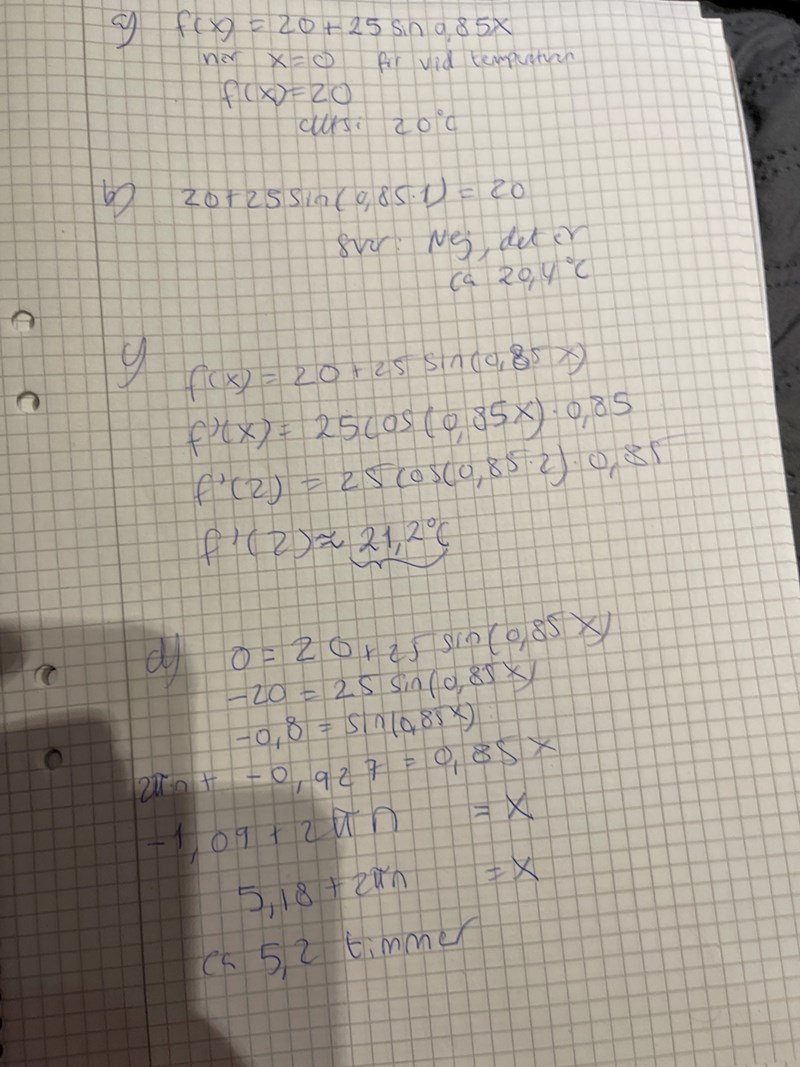 a) f(x) = 20 + 25 sin 0,85x
når x=0 får vid tempraturen
f(x)=20
SVAR: 20°C
b) 20+25sin(0,85·1) = 20
Svar: Nej, det är
ca 20,4°C
c) f(x) = 20 + 25 sin(0,85 x)
f'(x) = 25 cos(0,85x)·0,85
f'(2) = 25 cos(0,85·2)·0,85
f'(2) ≈ 21,2°C
d) 0 = 20 + 25 sin(0,85 x)
-20 = 25 sin(0,85x)
-0,8 = sin(0,85x)
2πn + -0,927 = 0,85 x
-1,09 + 2πn = x
5,18 + 2πn = x
ca 5,2 timmar